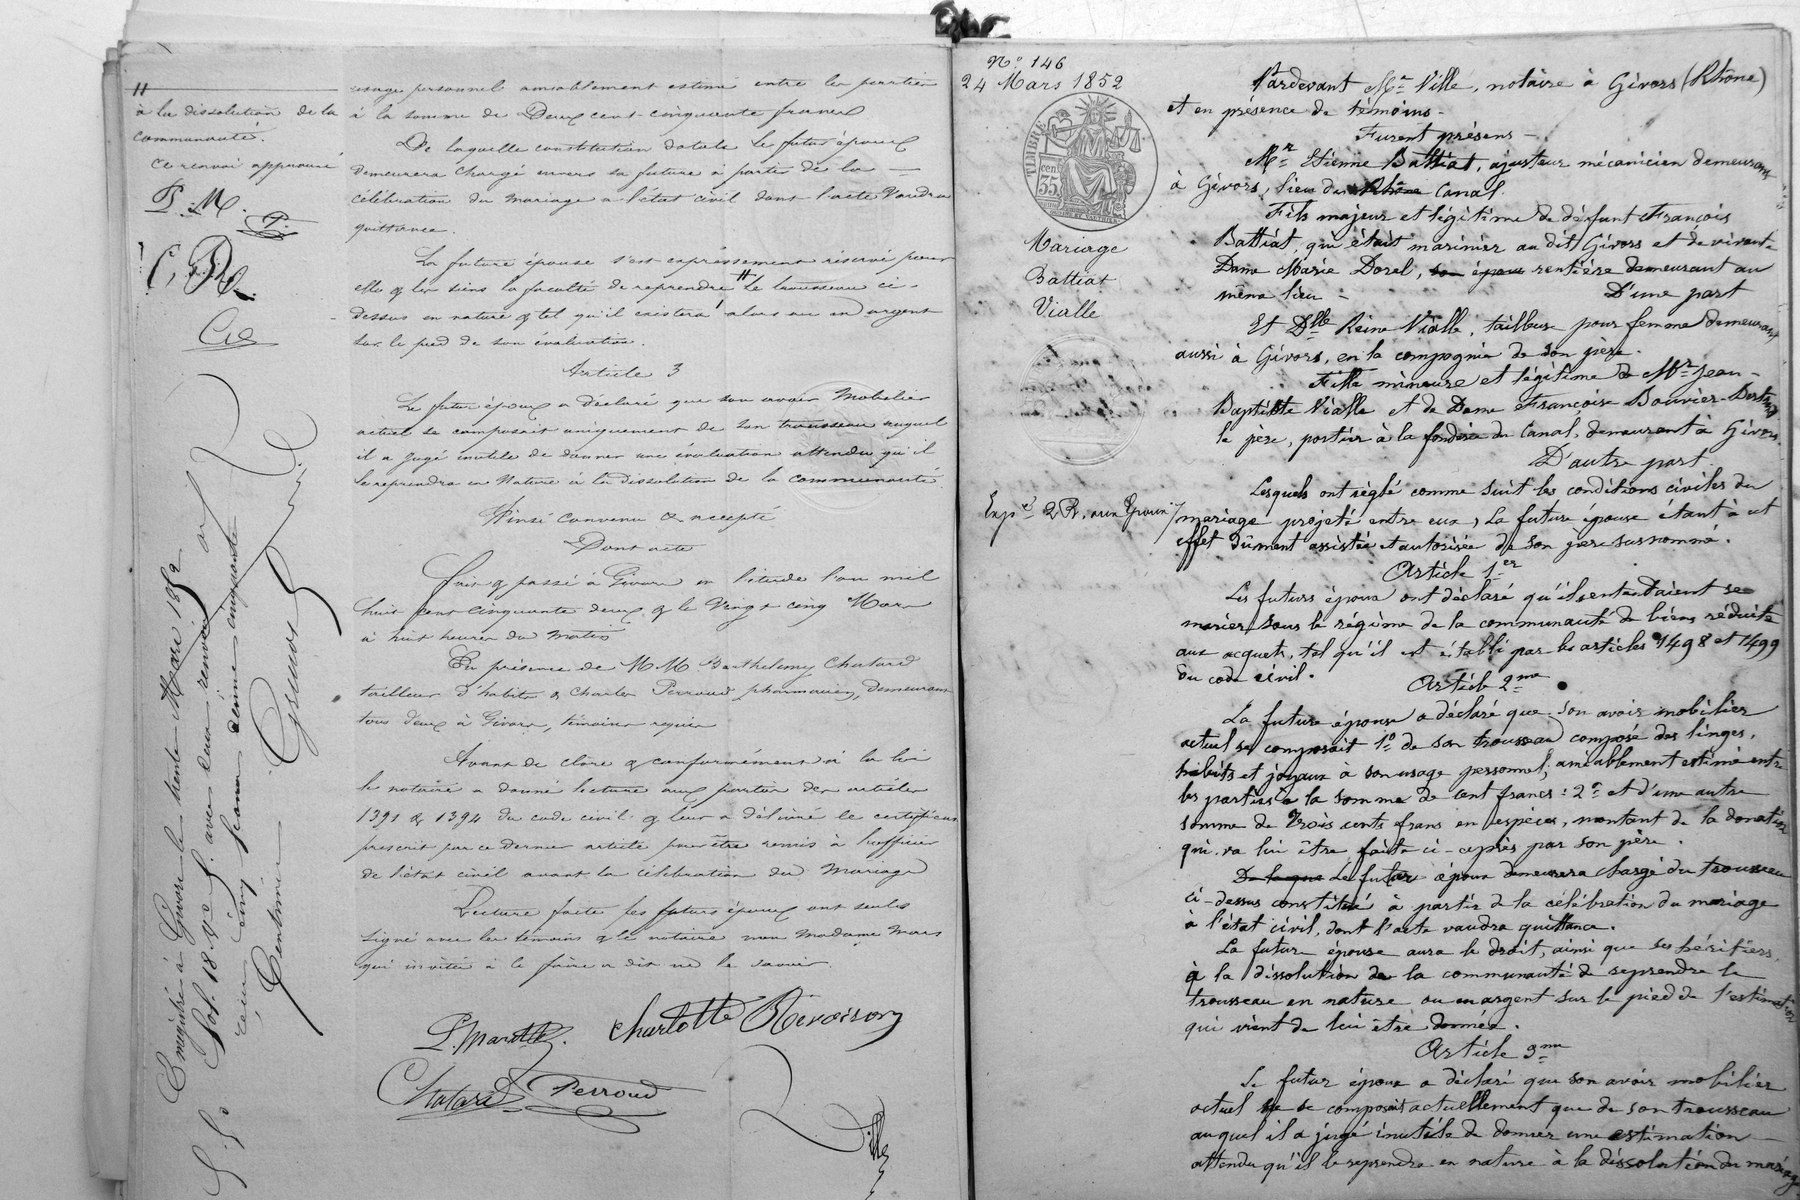 "
à la dissolution de la
communauté.
Ce renvoi approuvé
P. M.
P.
C. R.
Ch
usage personnel amiablement estimé entre les parties
à la somme de Deux cent cinquante francs
De laquelle constitution dotale le futur époux
demeurera chargé envers sa future à partir de la
célébration du mariage à l'état civil dont l'acte vaudra
quittance.
La future épouse s'est expressément réservé pour
elle & les siens la faculté de reprendre " le trousseau ci-
dessus en nature & tel qu'il existera alors ou en argent
sur le pied de son évaluation.
Article 3
Le futur époux a déclaré que son avoir mobilier
actuel se composait uniquement de son trousseau auquel
il a jugé inutile de donner une évaluation attendu qu'il
le reprendra en Nature à la Dissolution de la communauté
Ainsi convenu & accepté
Dont acte
Fait & passé à Givors en l'étude l'an mil
huit cent cinquante deux & le Vingt cinq Mars
à huit heures du matin
En présence de MM Barthelemy Chatard
tailleur d'habits & Charles Perroud pharmacien, demeurant
tous deux à Givors, témoins requis
Avant de clore & conformément à la loi
le notaire a donné lecture aux parties des articles
1391 & 1394 du code civil & leur a délivré le certificat
prescrit par ce dernier article pour être remis à l'officier
de l'état civil avant la célébration du Mariage
Lecture faite les futurs époux ont seuls
signé avec les témoins & le notaire non Madame
qui invitée à le faire a dit ne le savoir.
Charlotte Rivoiron
Chatard Perroud
Enregistré à Givors le trente Mars 1852
fol. 18 avec deux renvois
reçu cinq francs décime cinquante
Centimes
N° 146
24 Mars 1852
TIMBRE
35 cent
Mariage
Battiat
Vialle
Par devant Me Ville, notaire à Givors (Rhône)
et en présence de témoins -
Furent présens -
Mr Etienne Battiat, ajusteur mécanicien demeurant
à Givors, lieu du Rhône Canal
Fils majeur et légitime de défunt François
Battiat, qui était marinier au dit Givors et de vivante
Dame Marie Dorel, son épouse rentière demeurant au
même lieu - D'une part
Et Dlle Reine Vialle, tailleuse pour femme demeurant
aussi à Givors, en la compagnie de son père.
Fille mineure et légitime de Mr Jean-
Baptiste Vialle et de Dame Françoise Bouvier-Bertrand
le père, portier à la fonderie du Canal, demeurant à Givors.
D'autre part
Lesquels ont réglé comme suit les conditions civiles du
Expé 2 R. aux Epoux / mariage projeté entre eux, La future épouse étant à cet
effet dûment assistée et autorisée de son père susnommé.
Article 1er
Les futurs époux ont déclaré qu'ils entendaient se
marier sous le régime de la communauté de biens réduite
aux acquets, tel qu'il est établi par les articles 1498 et 1499
du code civil.
Article 2me
La future épouse a déclaré que son avoir mobilier
actuel se composait 1° de son trousseau composé des linges,
habits et joyaux à son usage personnel, amiablement estimé entre
les parties à la somme de cent francs : 2° et d'une autre
somme de Trois cents frans en espèces, montant de la donation
qui va lui être faite ci-après par son père.
De laque Le futur époux demeurera chargé du trousseau
ci-dessus constitué à partir de la célébration du mariage
à l'état civil, dont l'acte vaudra quittance.
La future épouse aura le droit, ainsi que ses héritiers,
à la dissolution de la communauté de reprendre le
trousseau en nature ou en argent sur le pied de l'estimation
qui vient de lui être donnée.
Article 3me
Le futur époux a déclaré que son avoir mobilier
actuel ne se composait actuellement que de son trousseau
auquel il a jugé inutile de donner une estimation
attendu qu'il le reprendra en nature à la dissolution du mariage